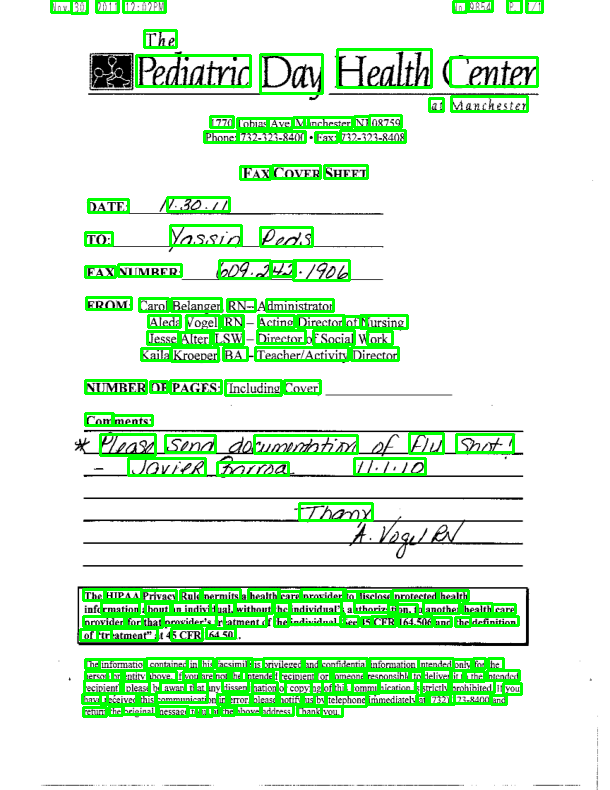 Nov. 30. 2011 12:02PM No. 0854 P. 1/1
The
Pediatric Day Health Center
at Manchester
1770 Tobias Ave Manchester NJ 08759
Phone: 732-323-8400 • Fax: 732-323-8408
FAX COVER SHEET
DATE: 11.30.11
TO: Yassin Peds
FAX NUMBER: 609.242.1906
FROM: Carol Belanger RN – Administrator
Aleda Vogel RN – Acting Director of Nursing
Jesse Alter LSW – Director of Social Work
Kaila Kroeper BA - Teacher/Activity Director
NUMBER OF PAGES: Including Cover
Comments:
* Please send documentation of Flu Shot!
- Javier 11.1.10
Thanx
A. Vogel RN
The HIPAA Privacy Rule permits a health care provider to disclose protected health
information about an individual, without the individual's authorization, to another health care
provider for that provider's treatment of the individual. See 45 CFR 164.506 and the definition
of "treatment" at 45 CFR 164.501.
The information contained in this facsimile is privileged and confidential information intended only for the
person or entity above. If you are not the intended recipient or someone responsible to deliver it to the intended
recipient, please be aware that any dissemination or copying of this communication is strictly prohibited. If you
have received this communication in error, please notify us by telephone immediately at (732) 323-8400 and
return the original message to us at the above address. Thank you.